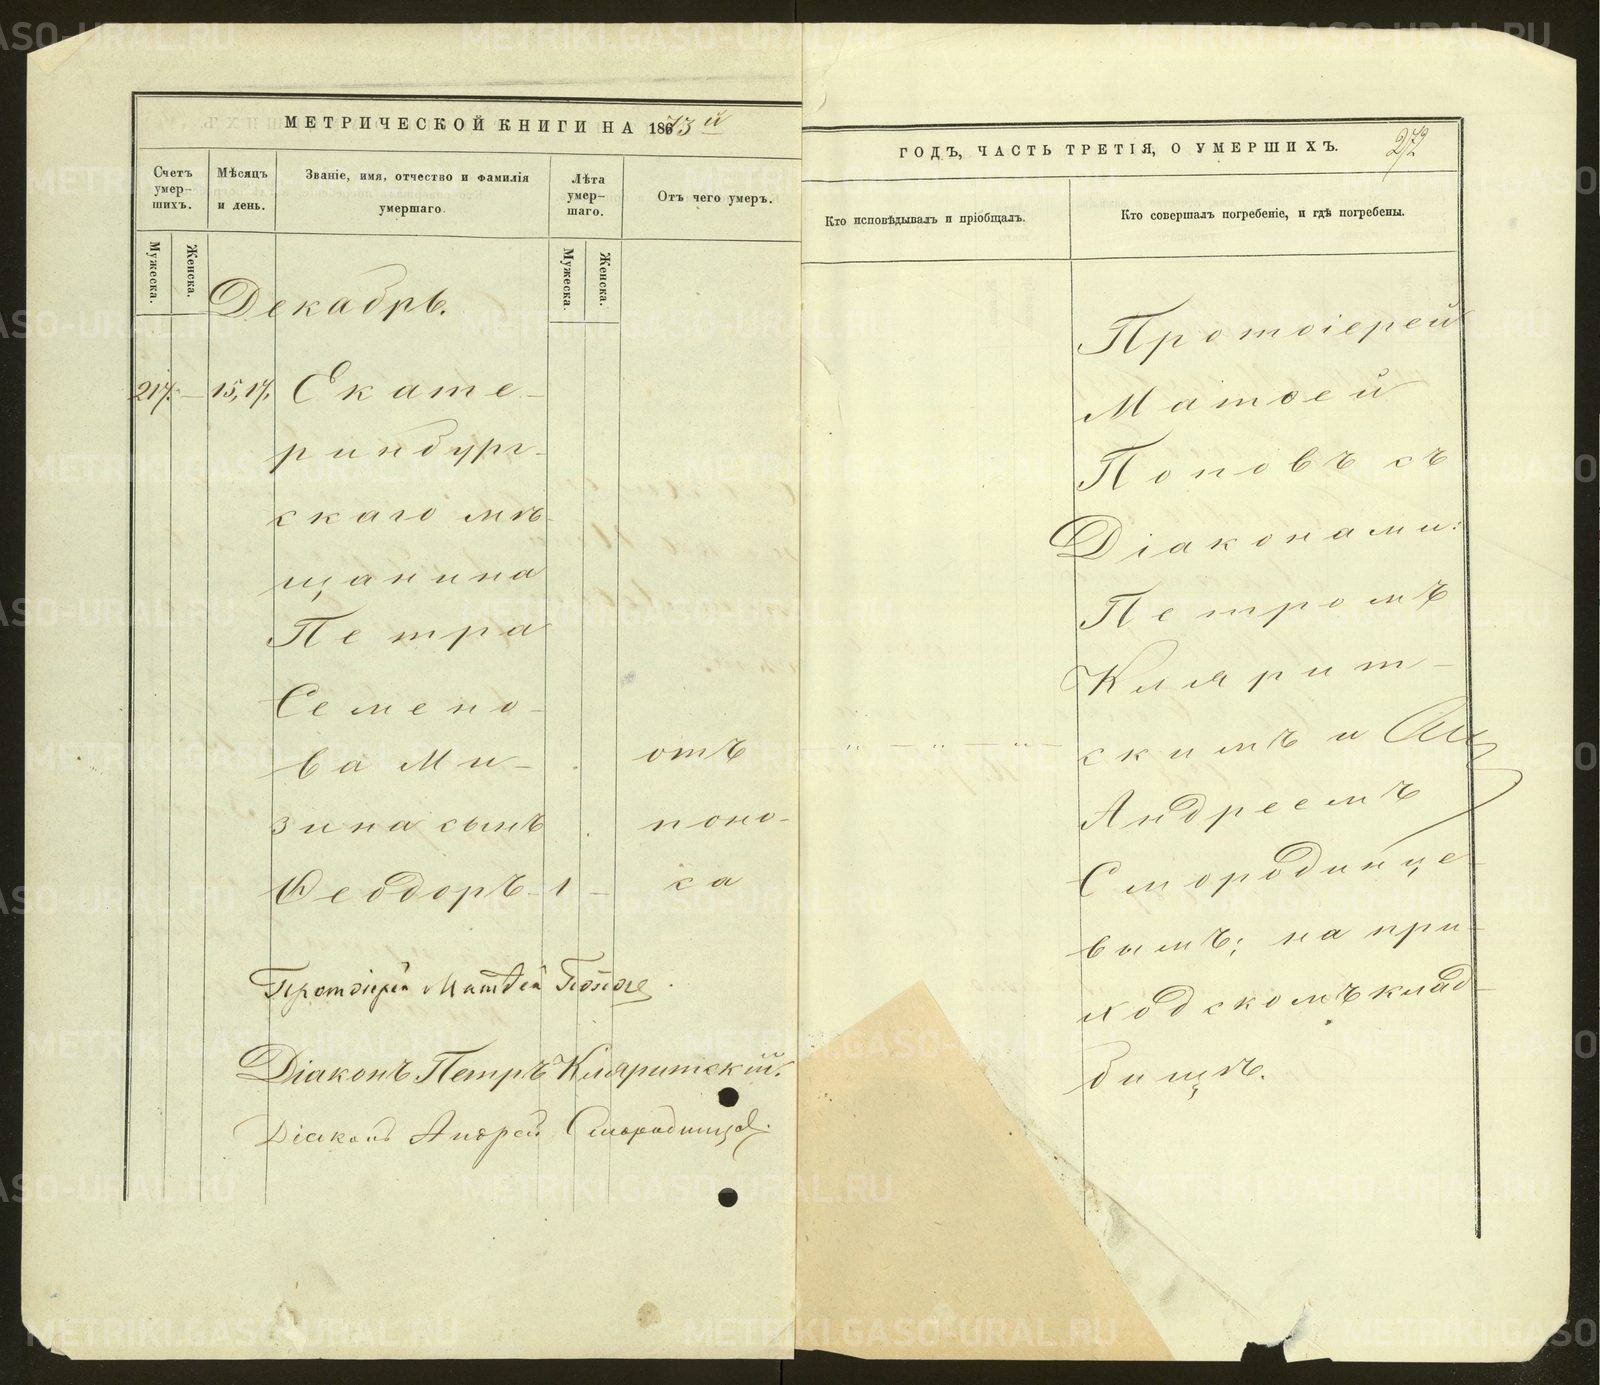 МЕТРИЧЕСКОЙ КНИГИ НА 1873й
Счетъ умер-шихъ.
Мѣсяцъ и день.
Званіе, имя, отчество и фамилія умершаго.
Лѣта умер-шаго.
Отъ чего умеръ.
Мужеска.
Женска.
Мужеска.
Женска.
Декабрь.
217. – 15, 17, Екате-
ринбург-
скаго мѣ-
щанина
Петра
Семено-
ва Ми-
зина сынъ
Ѳеодоръ – 1 –
отъ
поно-
са
Протоіерей Матѳей Поповъ.
Діаконъ Петръ Кляритскій.
Діаконъ Андрей Смородинцев.
ГОДЪ, ЧАСТЬ ТРЕТІЯ, О УМЕРШИХЪ.
272
Кто исповѣдывалъ и пріобщалъ.
Кто совершалъ погребеніе, и гдѣ погребены.
– „ – „ – „ –
Протоіерей
Матѳей
Поповъ съ
Діаконами:
Петромъ
Клярит-
скимъ и
Андреемъ
Смородинце-
вымъ; на при-
ходскомъ клад-
бищѣ.
METRIKI.GASO-URAL.RU